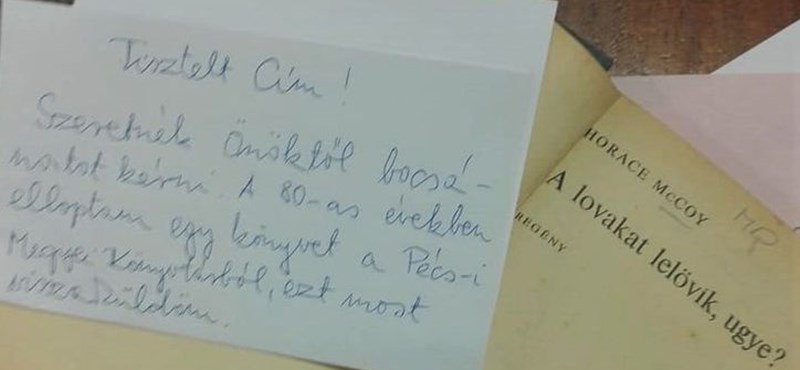 Tisztelt Cím!
Szeretnék Önöktől bocsá-
natot kérni. A 80-as években
elloptam egy könyvet a Pécs-i
Megyei Könyvtárból, ezt most
visszaküldöm.
HORACE McCOY
A lovakat lelövik, ugye?
REGÉNY